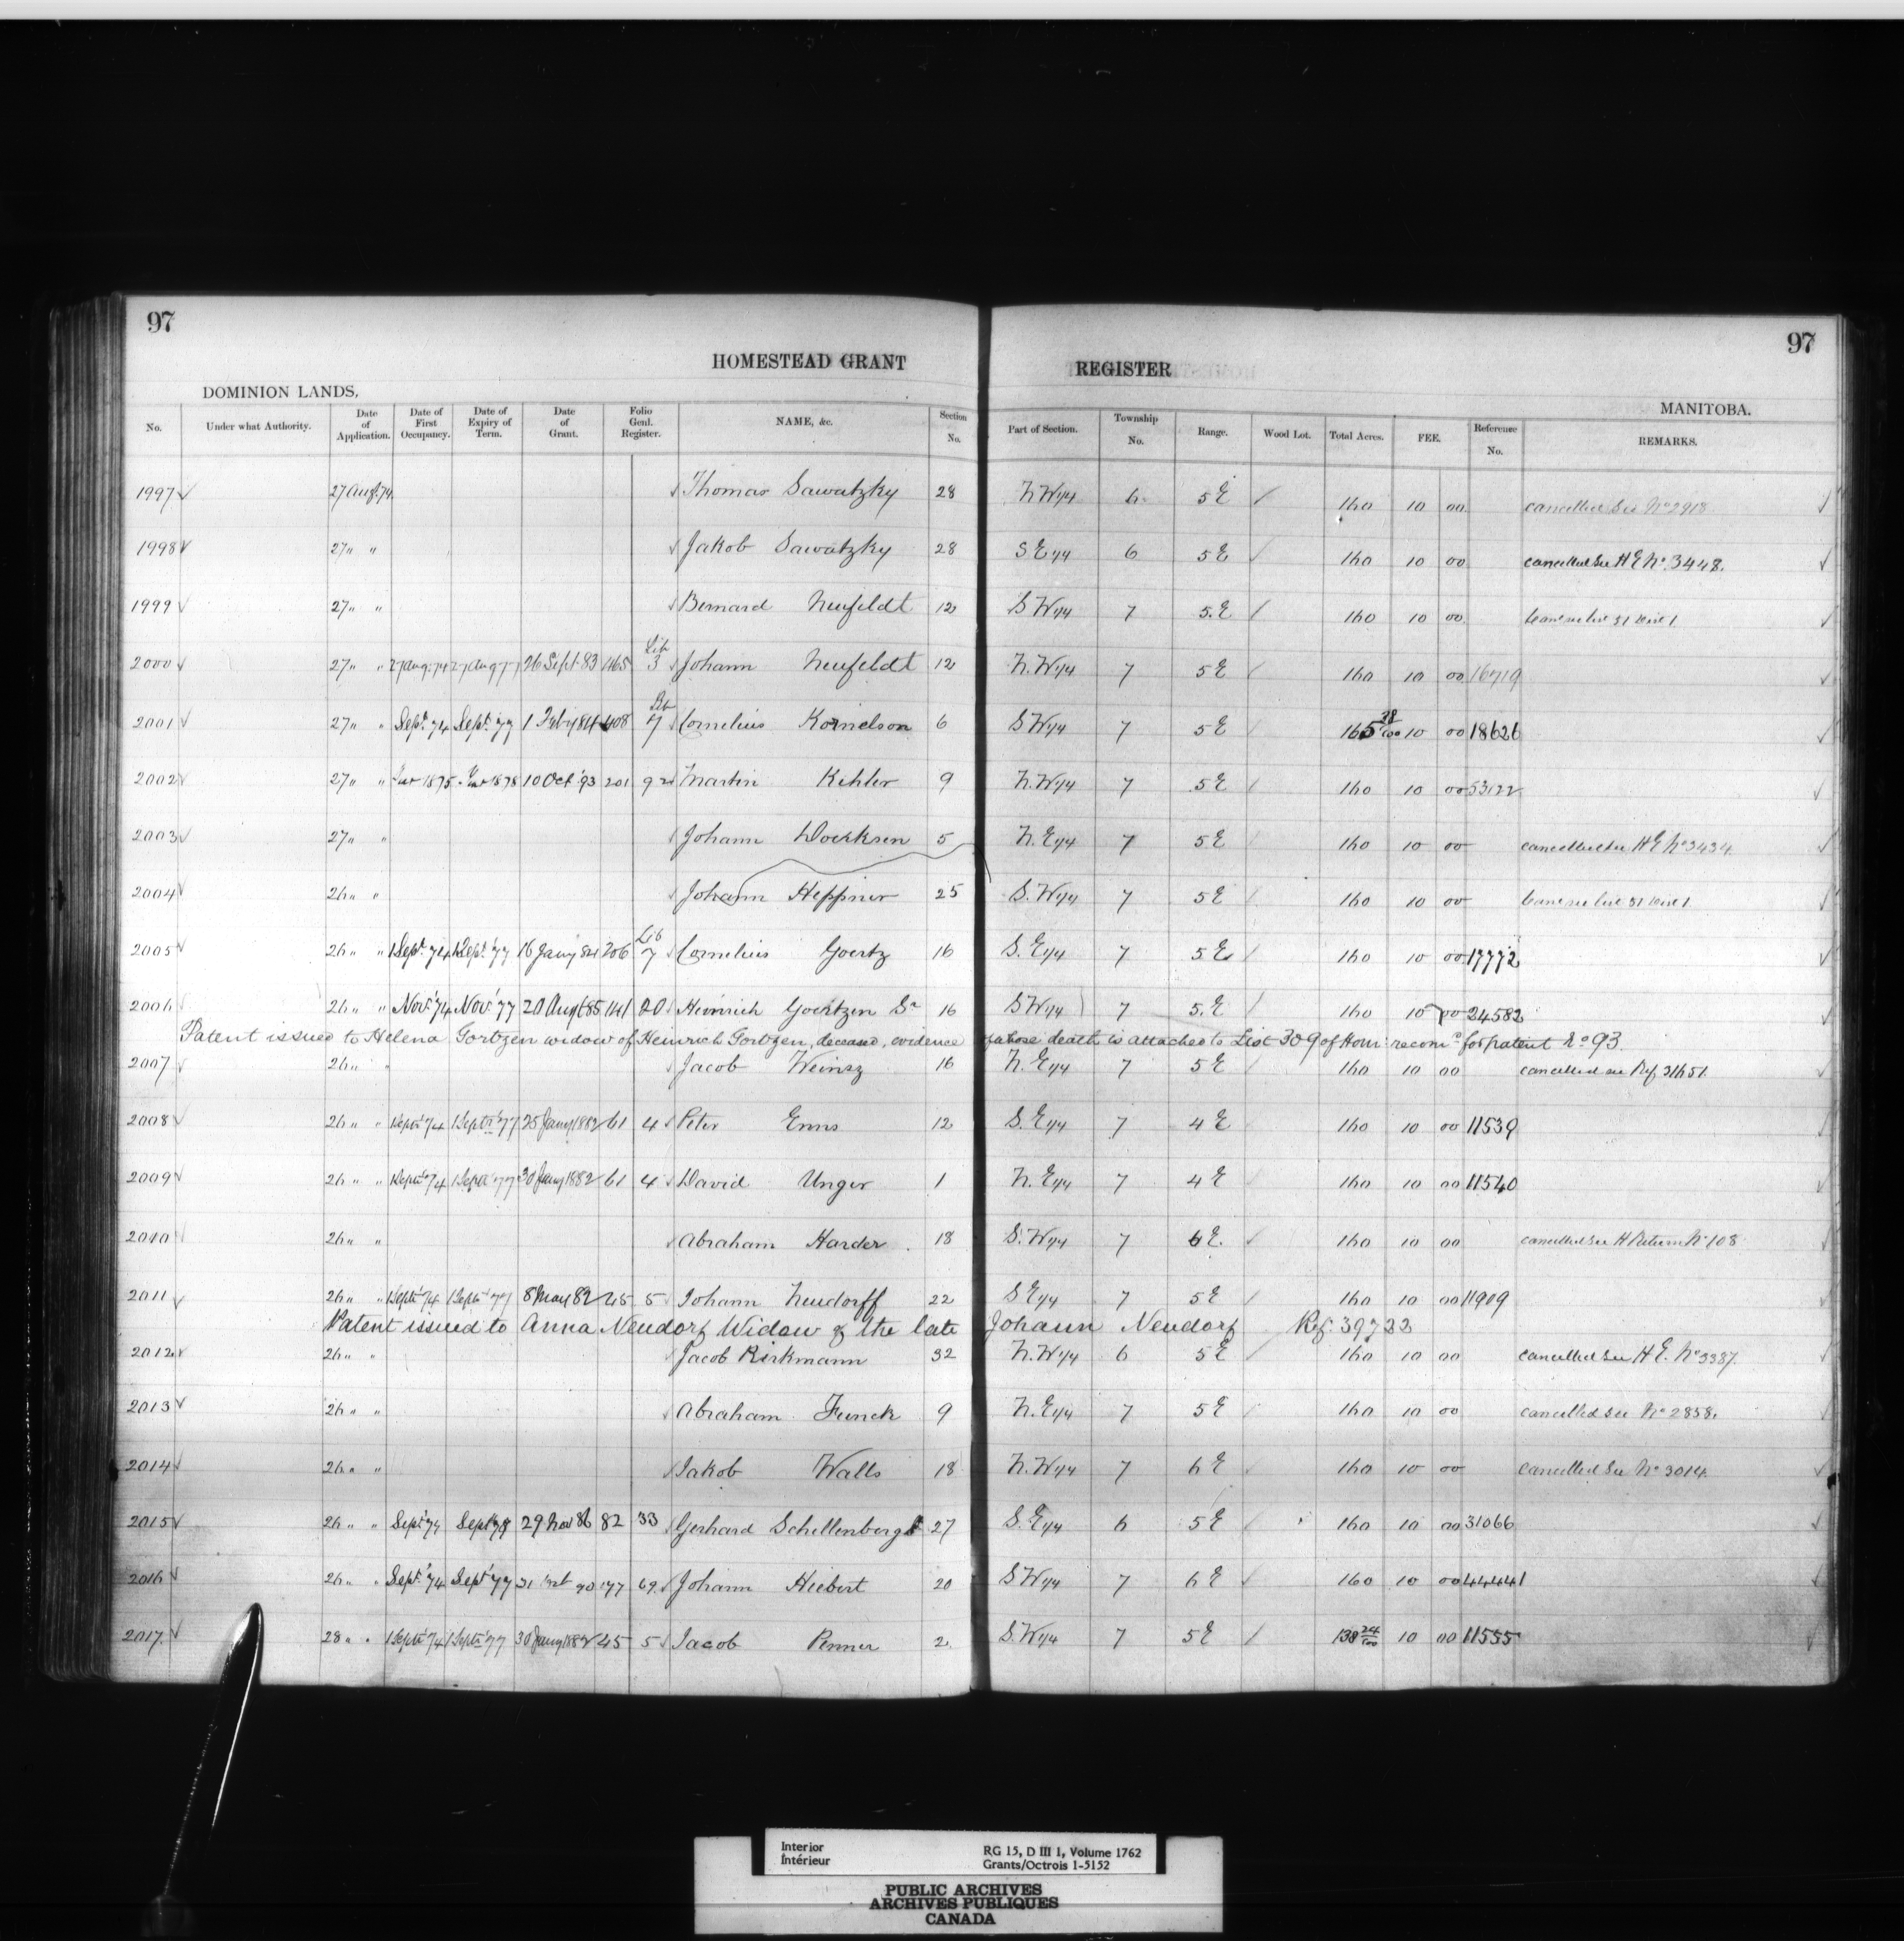 97 97
HOMESTEAD GRANT REGISTER
DOMINION LANDS, MANITOBA.
No. Under what Authority. Date of Application. Date of First Occupancy. Date of Expiry of Term. Date of Grant. Folio Genl. Register. NAME, &c. Section No. Part of Section. Township No. Range. Wood Lot. Total Acres. FEE. Reference No. REMARKS.
1997 27 Aug. 74 Thomas Sawatzky 28 N.W 1/4 6 5 E 160 10 00 cancelled See No 2918
1998 27 " " Jakob Sawatzky 28 S E 1/4 6 5 E 160 10 00 cancelled See H E No. 3448.
1999 27 " " Bernard Neufeldt 12 S W 1/4 7 5. E 160 10 00
2000 27 " " 27 Aug. 74 27 Aug 77 26 Sept 83 465 Lib 3 Johann Neufeldt 12 N.W 1/4 7 5 E 160 10 00 16719
2001 27 " " Sept. 74 Sept. 77 1 Feby 84 408 Lib 7 Cornelius Kornelson 6 S W 1/4 7 5 E 165 38/100 10 00 18626
2002 27 " " 1875 1878 10 Oct '93 201 92 Martin Kehler 9 N.W 1/4 7 5 E 160 10 00 53122
2003 27 " " Johann Doerksen 5 N.E 1/4 7 5 E 160 10 00 cancelled See H E No 3434
2004 26 " " Johann Heppner 25 S.W 1/4 7 5 E 160 10 00
2005 26 " " 1 Sept. 74 1 Sept. 77 16 Jany 84 206 Lib 7 Cornelius Goertz 16 S. E 1/4 7 5 E 160 10 00 17772
2006 26 " " Nov. '74 Nov. '77 20 Augt 85 141 20 Heinrich Goertzen Sr 16 S W 1/4 7 5. E 160 10 00 24582
Patent issued to Helena Gortzen widow of Heinrich Gortzen, deceased, evidence of whose death is attached to List 309 of Hom: recom. for patent No 93.
2007 26 " " Jacob Weinsz 16 N. E 1/4 7 5 E 160 10 00 cancelled see Ref 31651
2008 26 " " 1 Sept. 74 1 Sept. '77 25 Jany 1882 61 4 Peter Enns 12 S. E 1/4 7 4 E 160 10 00 11539
2009 26 " " 1 Sept. 74 1 Sept. '77 30 Jany 1882 61 4 David Unger 1 N. E 1/4 7 4 E 160 10 00 11540
2010 26 " " Abraham Harder 18 S. W 1/4 7 6 E. 160 10 00 cancelled See H Return No 108
2011 26 " " 1 Sept. 74 1 Sept. 77 8 May 82 45 5 Johann Neudorff 22 S E 1/4 7 5 E 160 10 00 11909
Patent issued to Anna Neudorf Widow of the late Johann Neudorf Ref. 39722
2012 26 " " Jacob Birkmann 32 N.W 1/4 6 5 E 160 10 00 cancelled See H E. No 3387.
2013 26 " " Abraham Funck 9 N. E 1/4 7 5 E 160 10 00 cancelled see No 2858.
2014 26 " " Jakob Walls 18 N. W 1/4 7 6 E 160 10 00 cancelled See No 3014
2015 26 " " Sept 74 Sept 78 29 Nov 86 82 33 Gerhard Schellenberg 27 S. E 1/4 6 5 E 160 10 00 31066
2016 26 " " Sept. '74 Sept '77 31 90 177 69 Johann Hiebert 20 S W 1/4 7 6 E 160 10 00 44441
2017. 28 " " 1 Sept. '74 1 Sept. '77 30 Jany 1882 45 5 Jacob Penner 2 S. W 1/4 7 5 E 138 24/100 10 00 11555
Interior RG 15, D III 1, Volume 1762
Intérieur Grants/Octrois 1-5152
PUBLIC ARCHIVES
ARCHIVES PUBLIQUES
CANADA